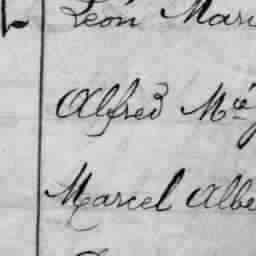 Léon Mari
Alfred Mie
Marcel Albe